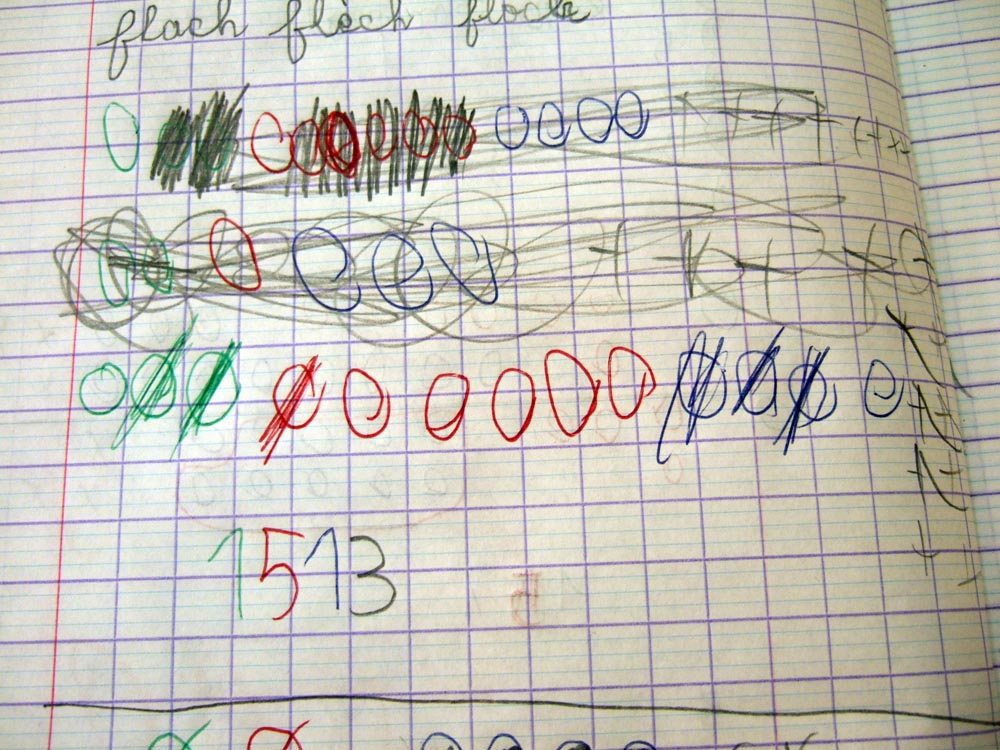 flach flèch flock
1513